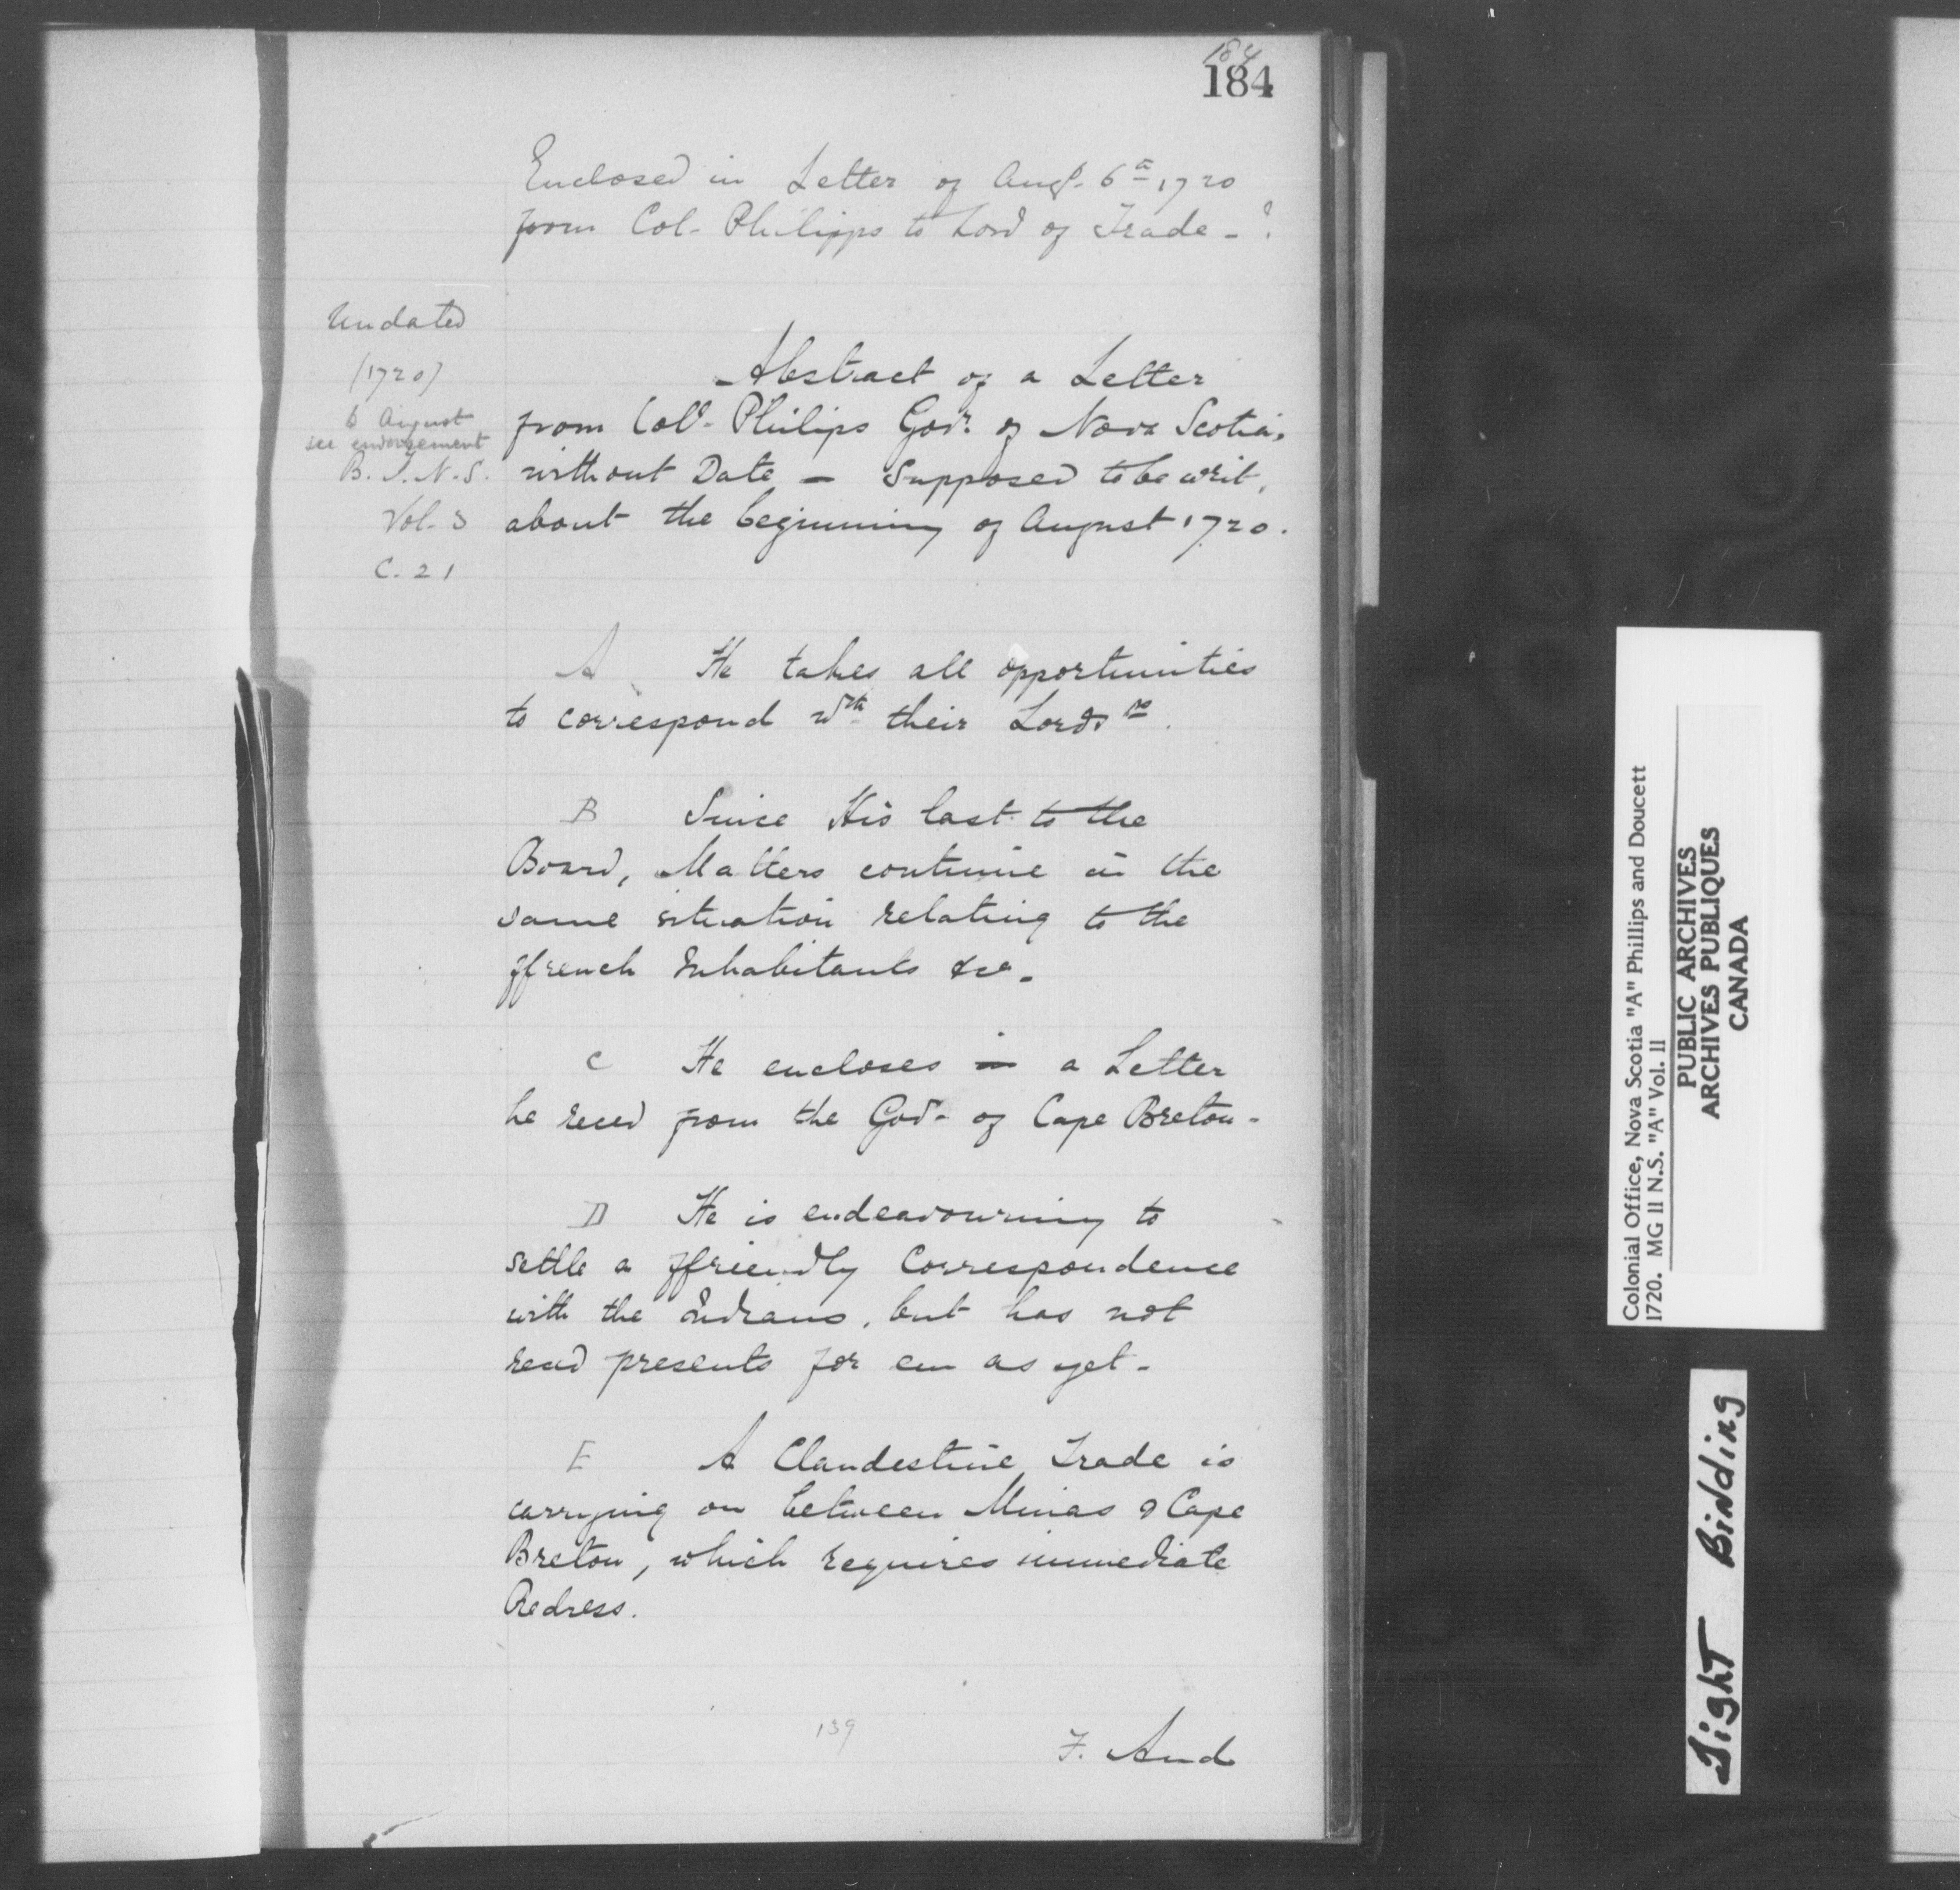 184
184
Enclosed in Letter of Augt. 6th 1720
from Col. Philipps to Lord of Trade - ?
Undated
(1720)
6 August
see endorsement
B. T. N. S.
Vol. 3
C. 21
Abstract of a Letter
from Coll. Philips Govr. of Nova Scotia,
without Date - Supposed to be writ,
about the beginning of August 1720.
A He takes all opportunities
to correspond wth their Lordsps.
B Since His last to the
Board, Matters continue in the
same situation relating to the
ffrench Inhabitants &ca.
C He encloses in a Letter
he reced from the Govr. of Cape Breton -
D He is endeavouring to
settle a ffriendly Correspondence
with the Indians, but has not
reced presents for em as yet -
E A Clandestine Trade is
carrying on between Minas & Cape
Breton, which requires immediate
Redress.
139
F. And
Colonial Office, Nova Scotia "A" Phillips and Doucett
1720. MG 11 N.S. "A" Vol. 11
PUBLIC ARCHIVES
ARCHIVES PUBLIQUES
CANADA
Tight Binding